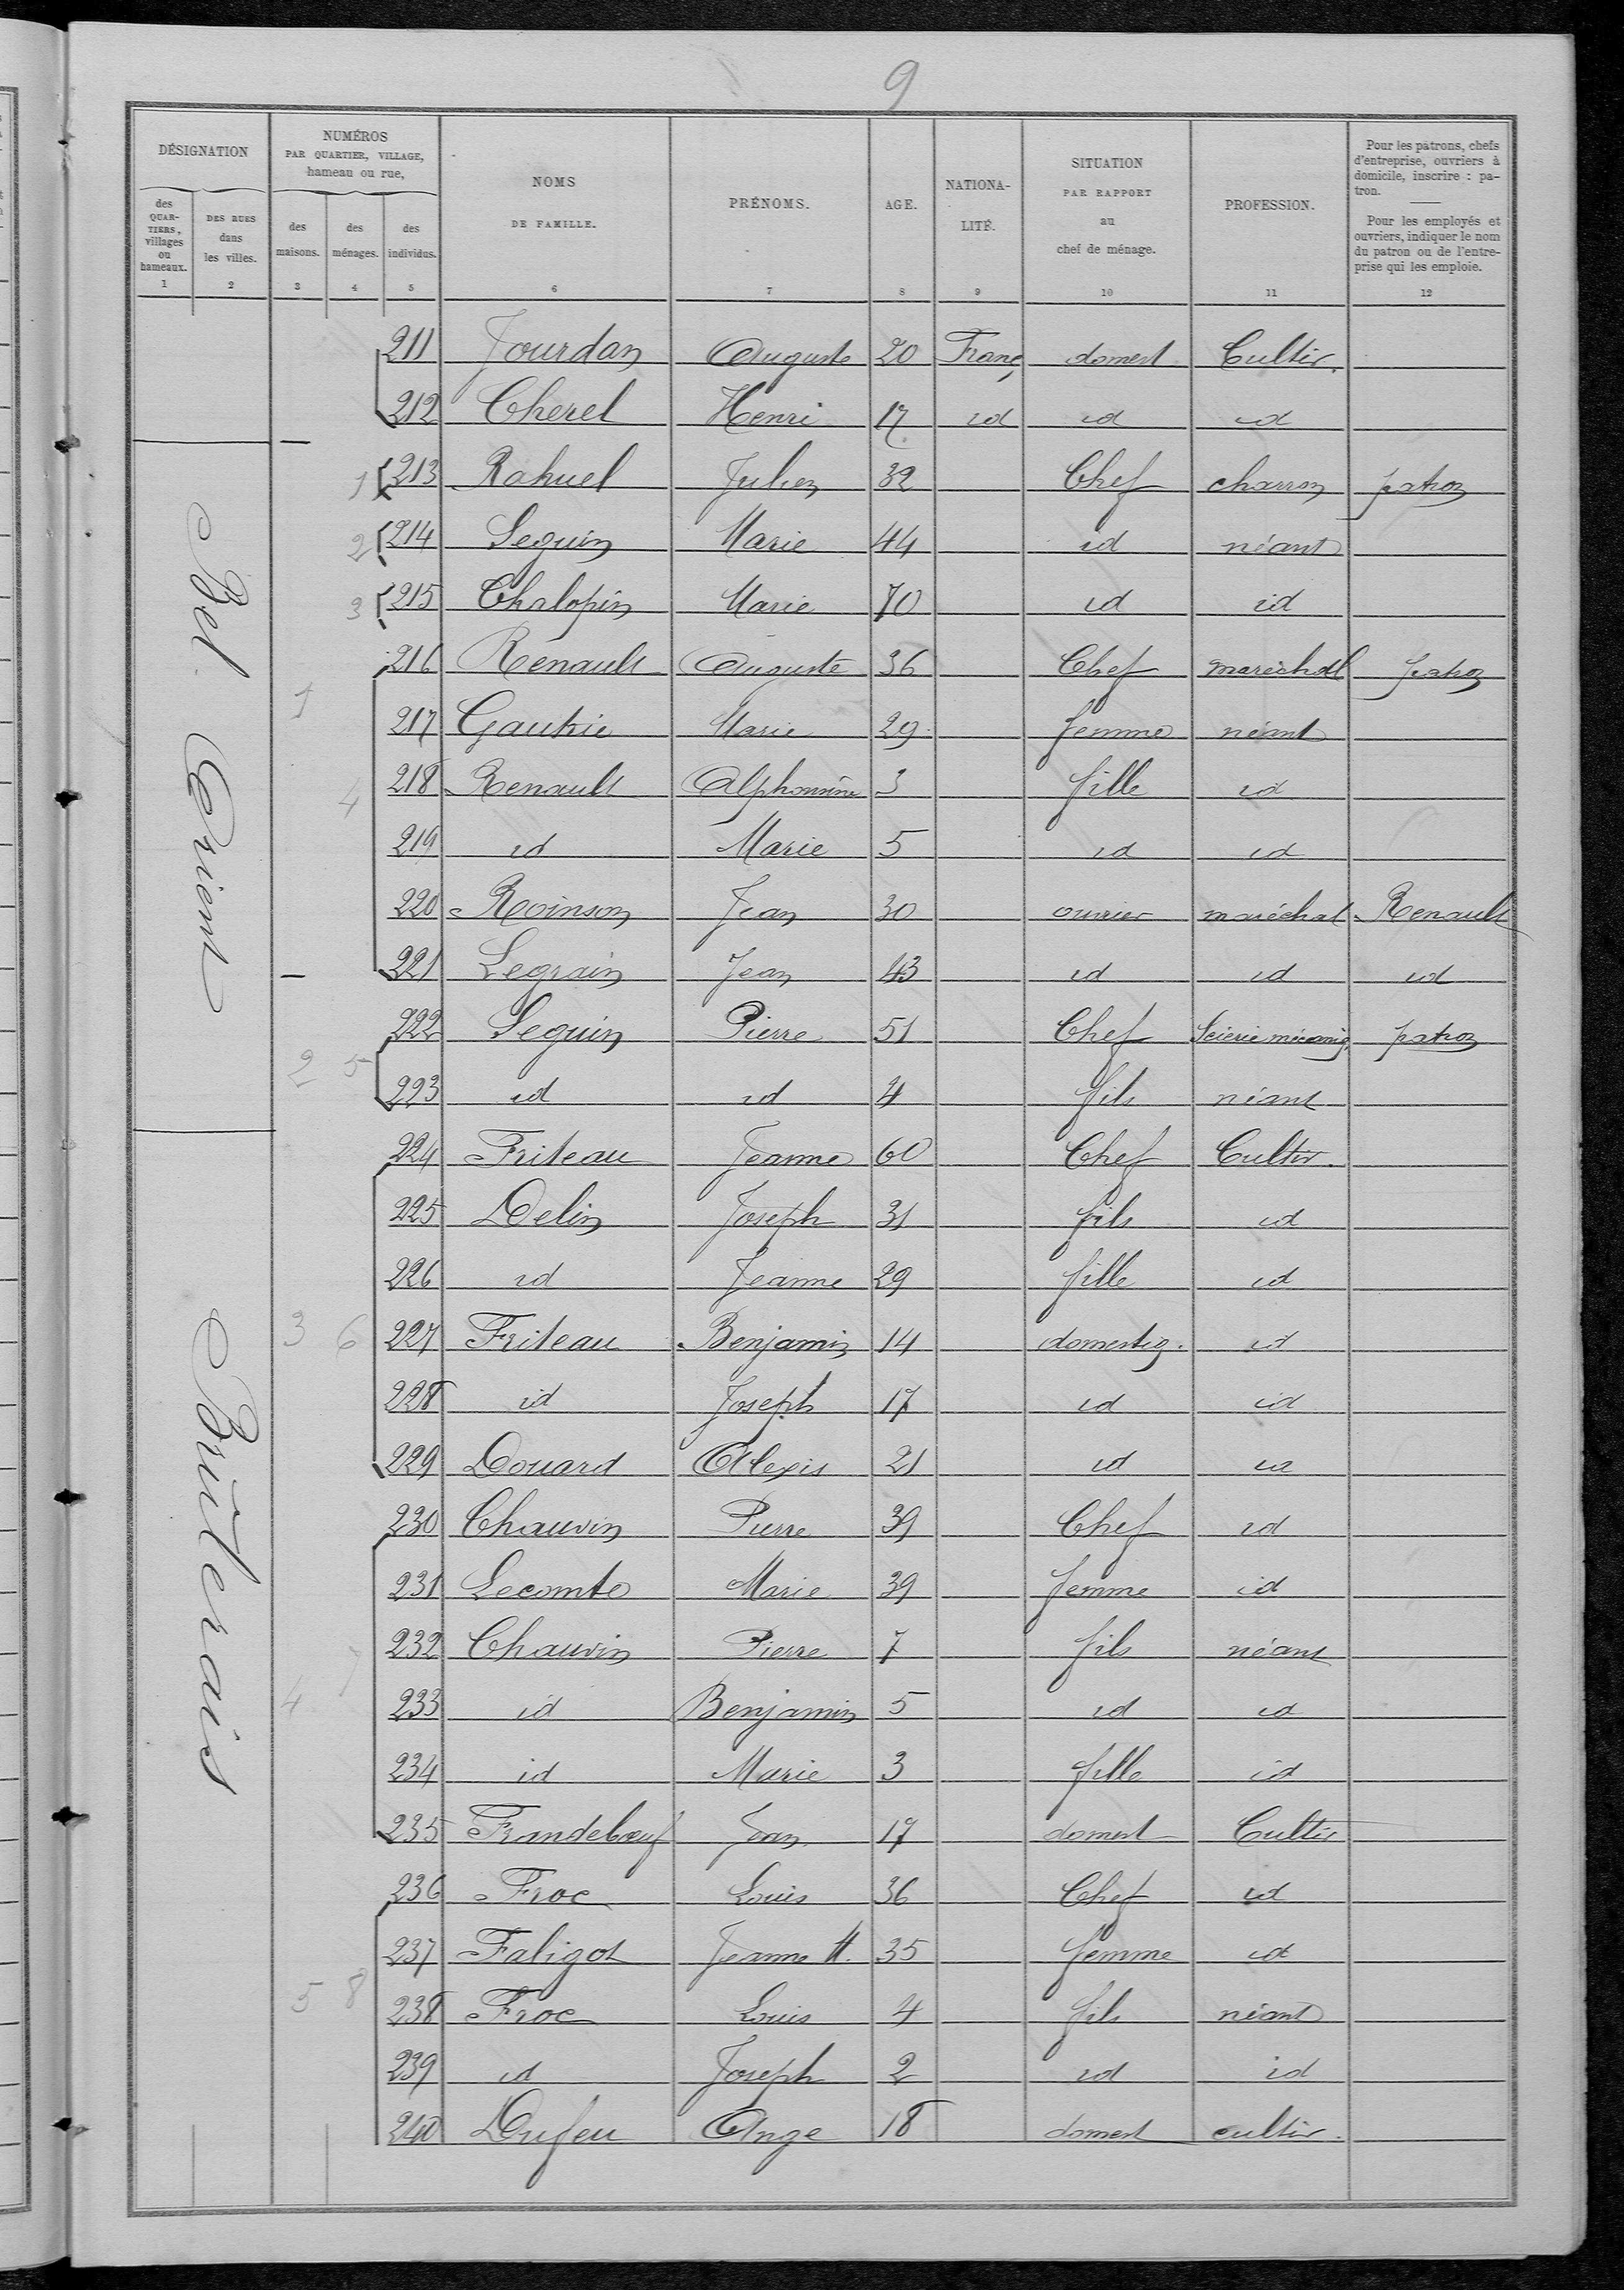 9
DÉSIGNATION
des QUARTIERS, villages ou hameaux.
DES RUES dans les villes.
NUMÉROS PAR QUARTIER, VILLAGE, hameau ou rue,
des maisons.
des ménages.
des individus.
NOMS DE FAMILLE.
PRÉNOMS.
AGE.
NATIONALITÉ.
SITUATION PAR RAPPORT au chef de ménage.
PROFESSION.
Pour les patrons, chefs d'entreprise, ouvriers à domicile, inscrire : patron.
Pour les employés et ouvriers, indiquer le nom du patron ou de l'entreprise qui les emploie.
1 2 3 4 5 6 7 8 9 10 11 12
211 Jourdan Auguste 20 Franç domest Cultiv.
212 Cherel Henri 17 id id id
Bel Orient
1 213 Rahuel Julien 32 Chef charron patron
2 214 Seguin Marie 44 id néant
3 215 Chalopin Marie 70 id id
216 Renault Auguste 36 Chef maréchal patron
1 217 Gautrie Marie 29 femme néant
4 218 Renault Alphonsine 3 fille id
219 id Marie 5 id id
220 Roinson Jean 30 ouvrier maréchal Renault
221 Legrain Jean 43 id id id
222 Seguin Pierre 51 Chef Scierie mécaniq. patron
2 5 223 id id 4 fils néant
Brûlerais
224 Friteau Jeanne 60 Chef Cultiv.
225 Delin Joseph 31 fils id
226 id Jeanne 29 fille id
3 6 227 Friteau Benjamin 14 domestiq. id
228 id Joseph 17 id id
229 Douard Alexis 21 id id
230 Chauvin Pierre 39 Chef id
231 Lecomte Marie 39 femme id
7 232 Chauvin Pierre 7 fils néant
4 233 id Benjamin 5 id id
234 id Marie 3 fille id
235 Frandebœuf Jean 17 domest Cultiv
236 Froc Louis 36 Chef id
237 Faligot Jeanne M. 35 femme id
5 8 238 Froc Louis 4 fils néant
239 id Joseph 2 id id
240 Dufeu Ange 18 domest cultiv.